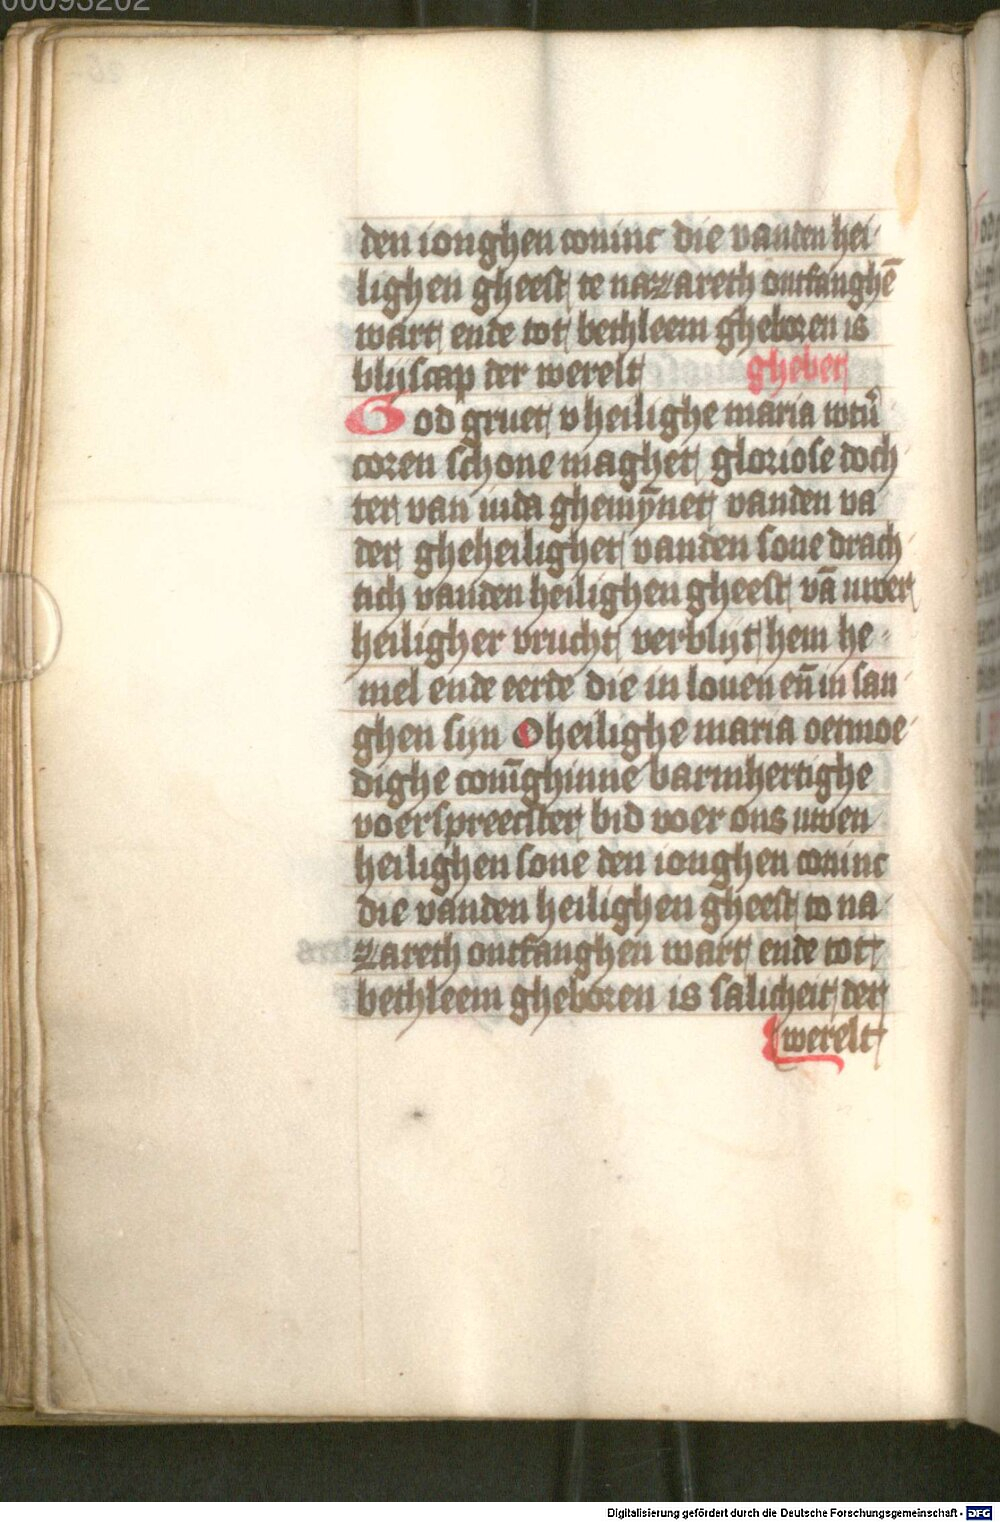 00093202
den ionghen coninc die vanden hei-
lighen gheest te nazareth ontfanghē
wart ende tot bethleem gheboren is
blijscap der werelt
ghebet
God gruet v heilighe maria wtū
coren schone maghet gloriose doch-
ter van iuda ghemȳnet vanden va
der gheheilighet vanden sone drach-
tich vanden heilighen gheest vā uwer
heiligher vrucht verblijt hem he-
mel ende eerde die in louen eñ in san-
ghen sijn O heilighe maria oetmoe-
dighe conīghinne barmhertighe
voerspreecster bid voer ons uwen
heilighen sone den ionghen coninc
die vanden heilighen gheest to na-
zareth ontfanghen wart ende tot
bethleem gheboren is salicheit der
werelt
Digitalisierung gefördert durch die Deutsche Forschungsgemeinschaft - DFG